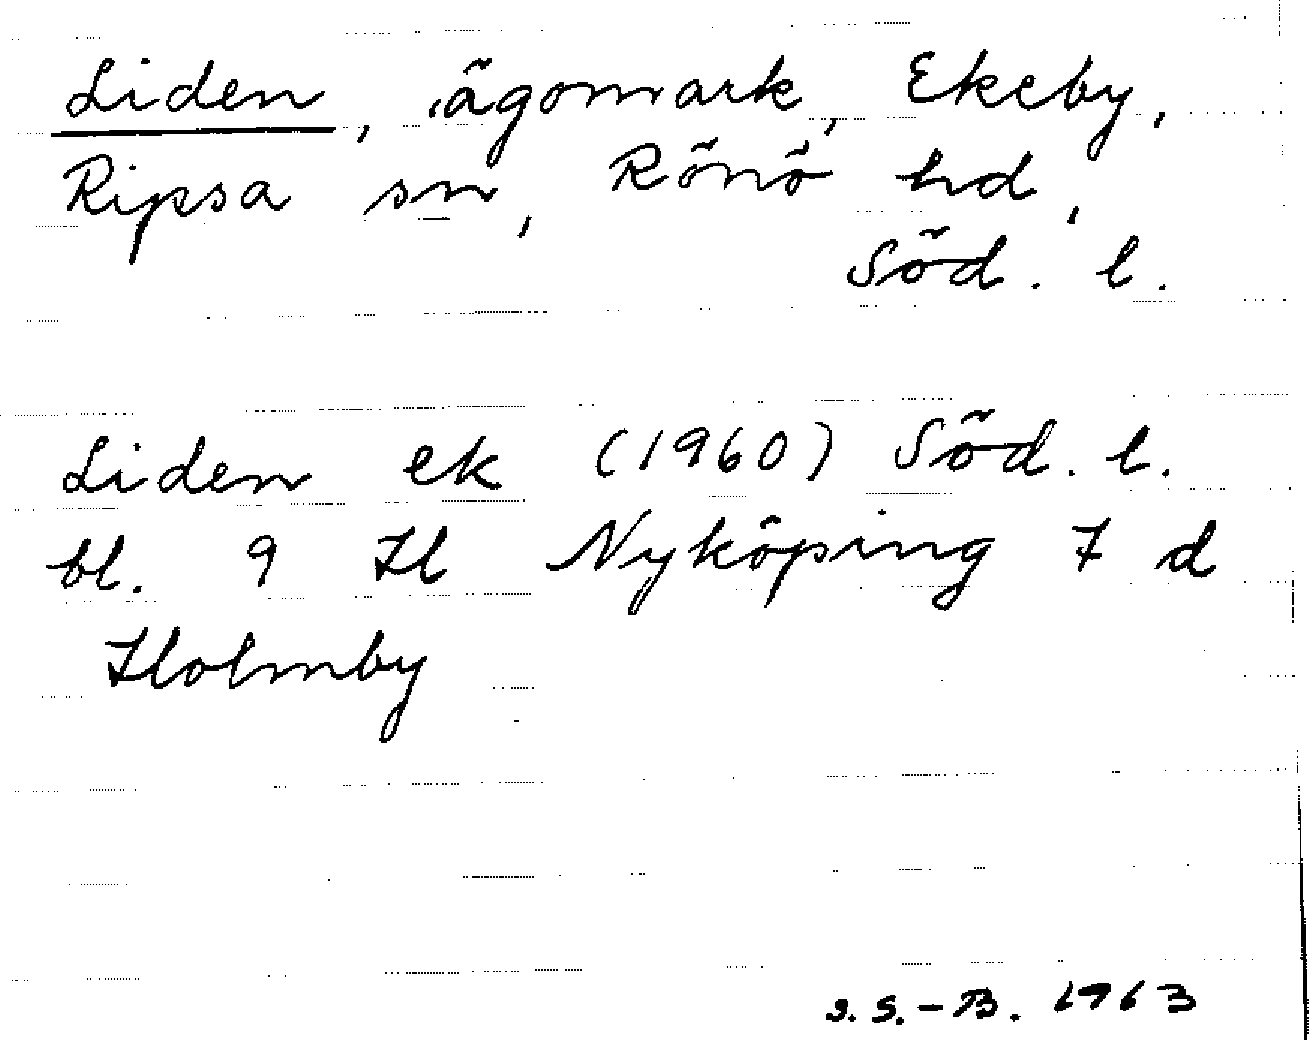 Liden, ägomark, Ekeby,
Ripsa sn, Rönö hd,
Söd. l.
Liden ek (1960) Söd. l.
bl. 9 H Nyköping 7 d
Holmby
S.S.-B. 1963